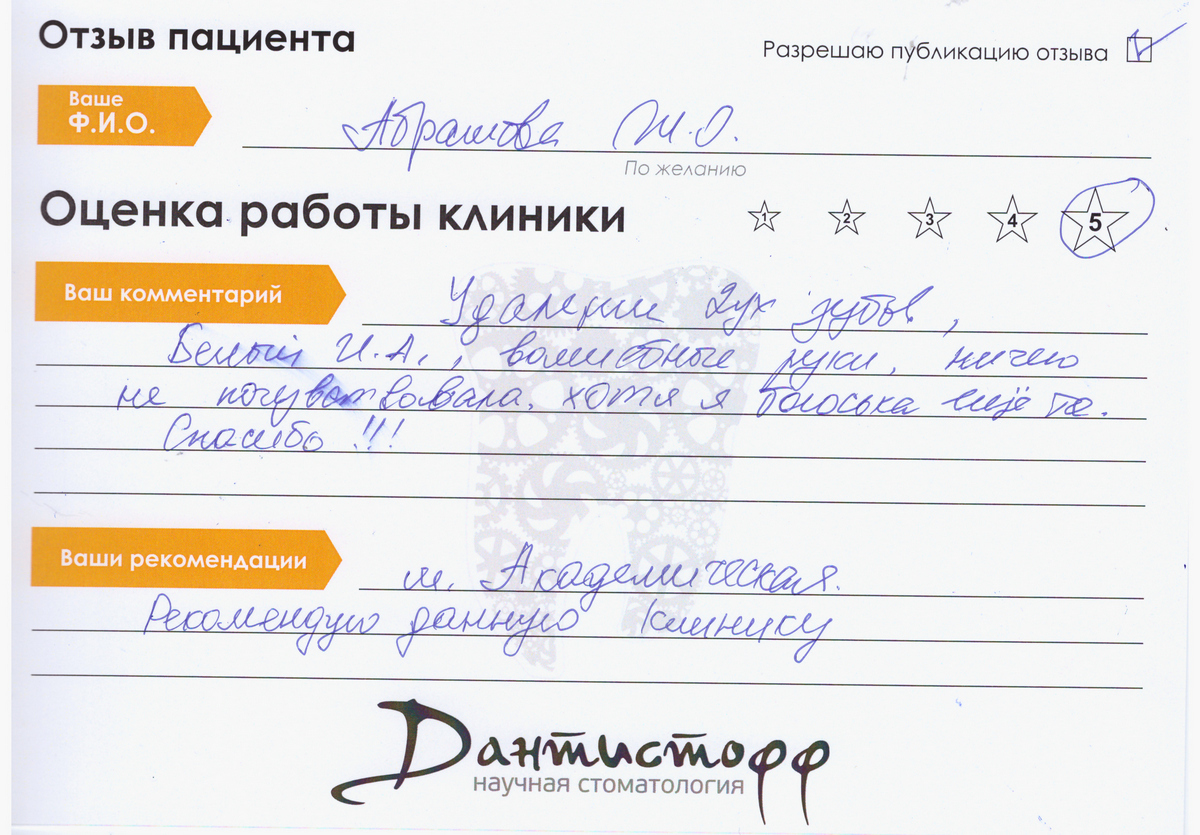 Отзыв пациента
Разрешаю публикацию отзыва
Ваше
Ф.И.О.
Абрамова М.О.
По желанию
Оценка работы клиники
1 2 3 4 5
Ваш комментарий
Удалении 2ух зубов,
Белый И.А., волшебные руки, ничего
не почувствовала, хотя я боюська ещё та.
Спасибо!!!
Ваши рекомендации
м. Академическая.
Рекомендую данную клинику
Дантистофф
научная стоматология